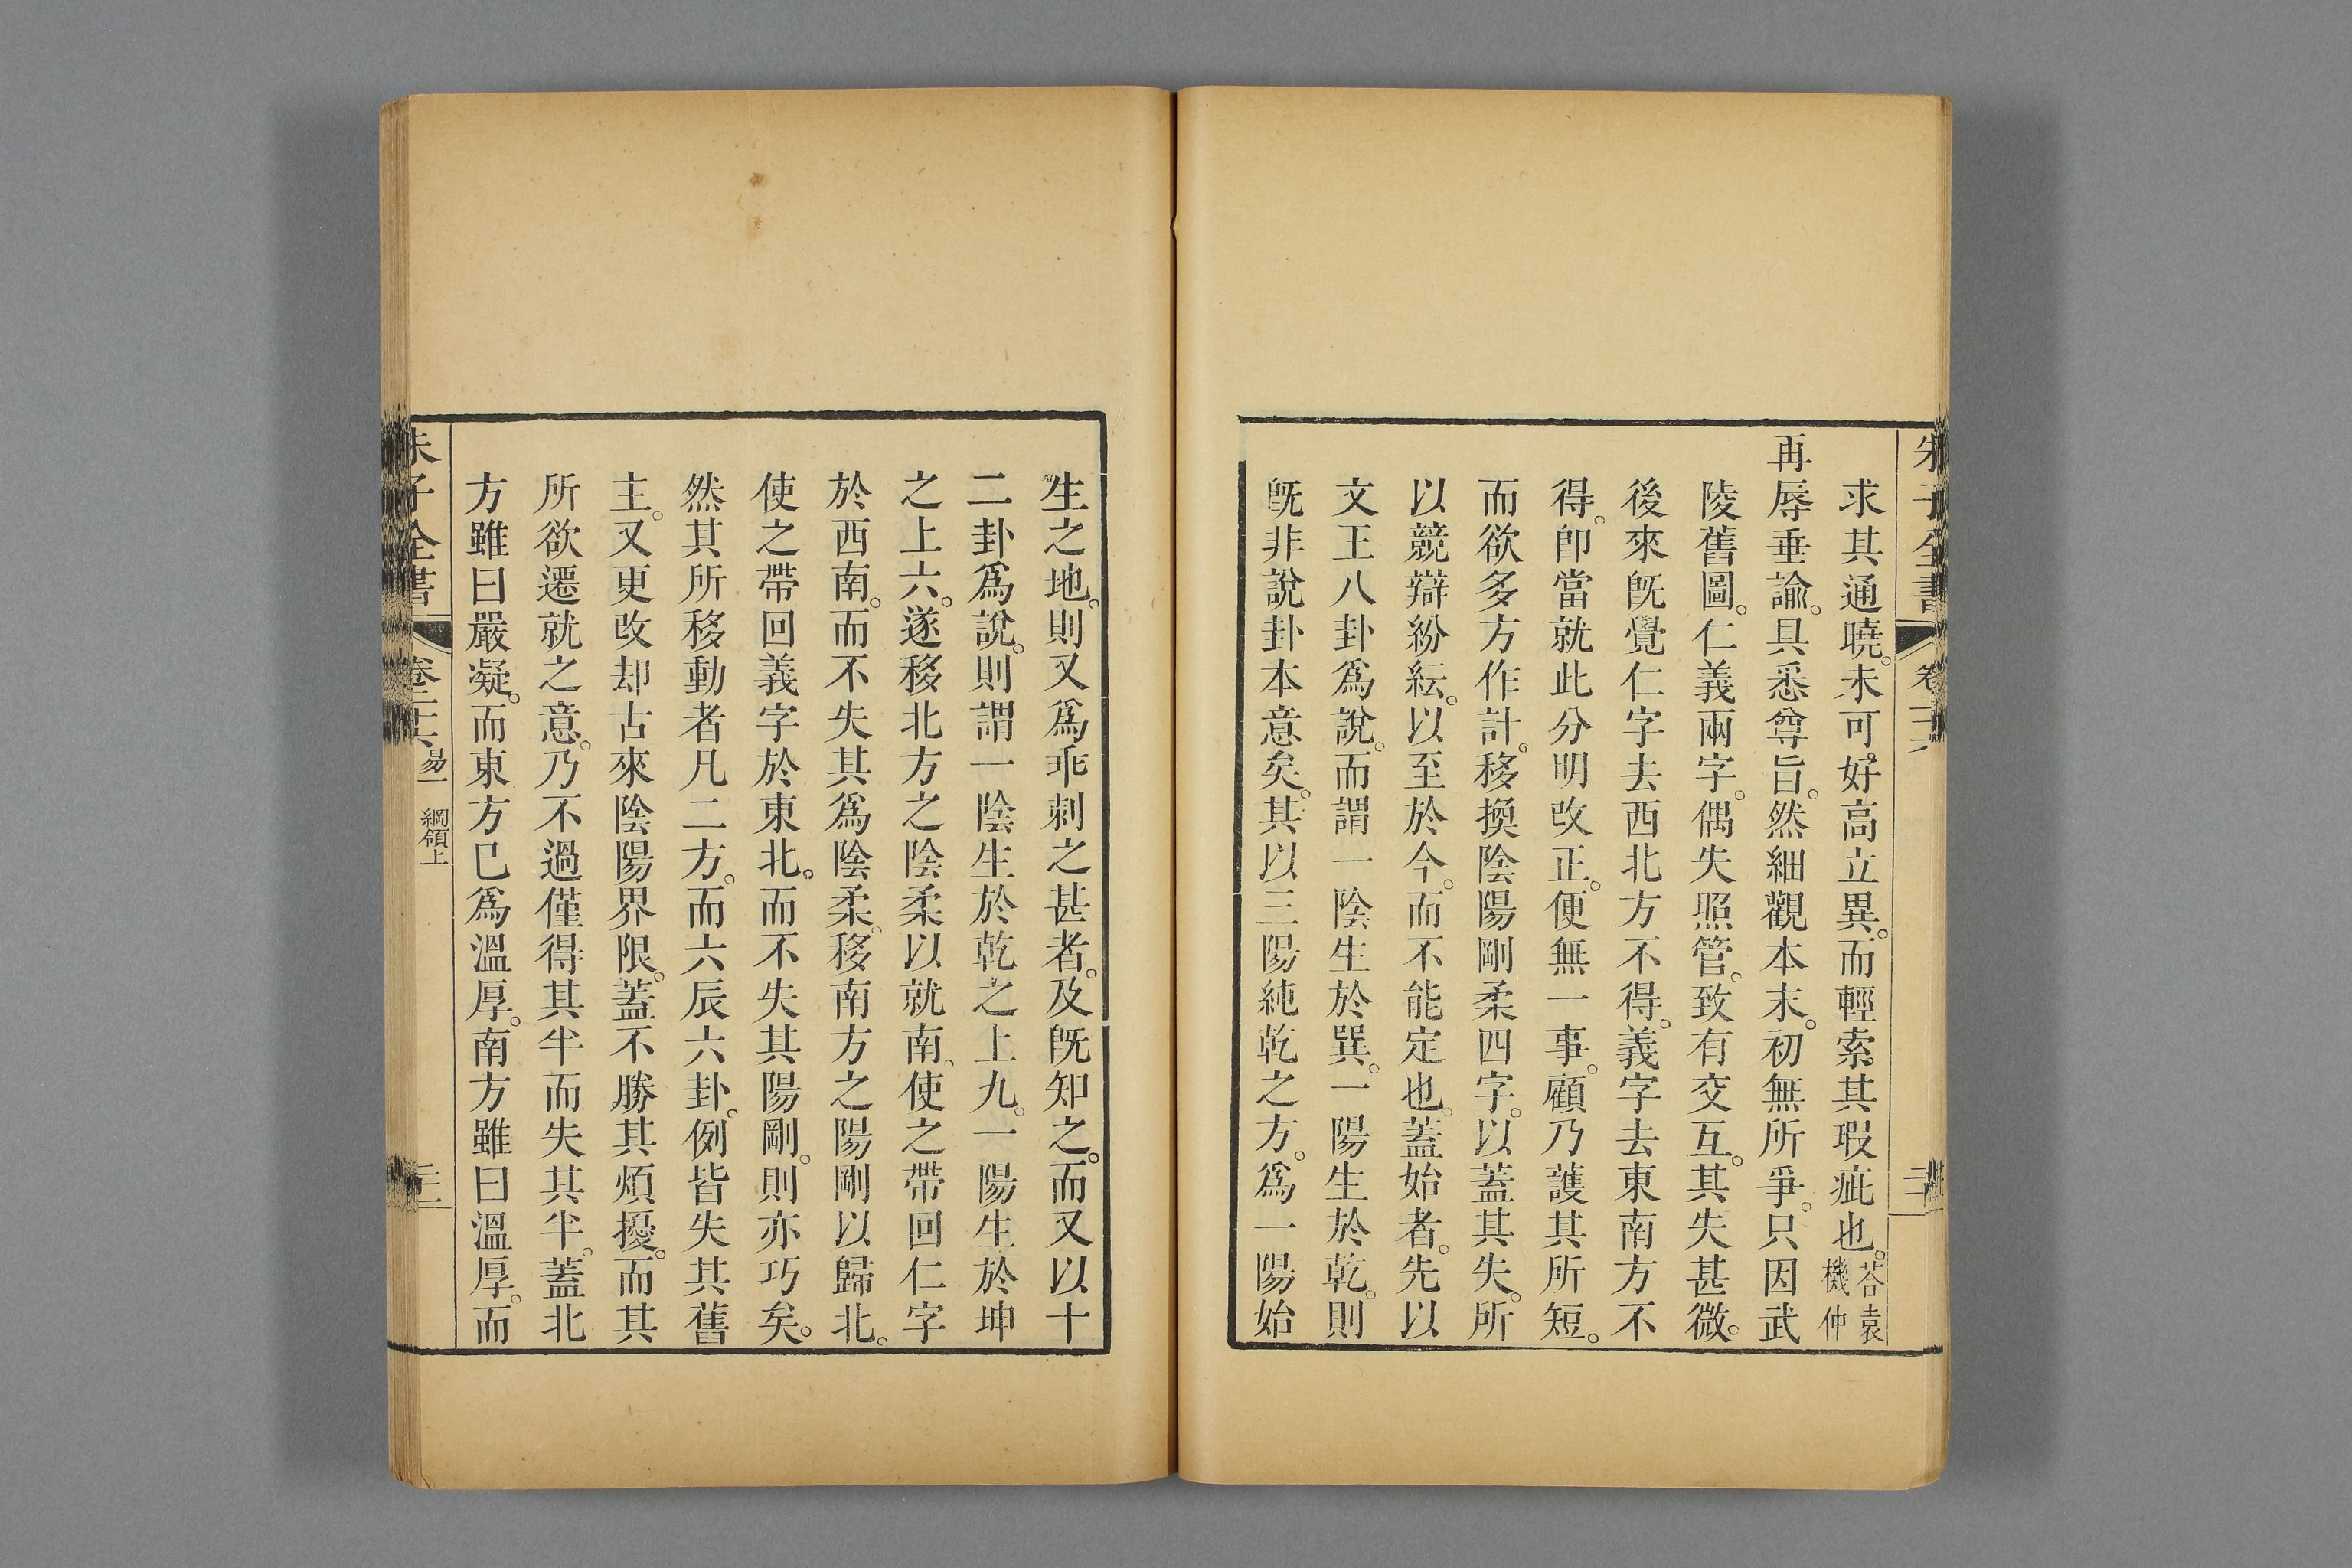 求其通曉。未可好高立異。而輕索其瑕疵也。答袁機仲
再辱垂諭。具悉尊旨。然細觀本末。初無所爭。只因武
陵舊圖。仁義兩字。偶失照管。致有交互。其失甚微。
後來旣覺仁字去西北方不得。義字去東南方不
得。卽當就此分明改正。便無一事。顧乃護其所短。
而欲多方作計。移換陰陽剛柔四字。以蓋其失。所
以競辯紛紜。以至於今。而不能定也。蓋始者。先以
文王八卦爲說。而謂一陰生於巽。一陽生於乾。則
旣非說卦本意矣。其以三陽純乾之方。爲一陽始
生之地。則又爲乖剌之甚者。及旣知之。而又以十
二卦爲說。則謂一陰生於乾之上九。一陽生於坤
之上六。遂移北方之陰柔以就南。使之帶回仁字
於西南。而不失其爲陰柔。移南方之陽剛以歸北。
使之帶回義字於東北。而不失其陽剛。則亦巧矣。
然其所移動者凡二方。而六辰六卦。例皆失其舊
主。又更改却古來陰陽界限。蓋不勝其煩擾。而其
所欲遷就之意。乃不過僅得其半而失其半。蓋北
方雖曰嚴凝。而東方已爲溫厚。南方雖曰溫厚。而
朱子全書 易一 綱領上